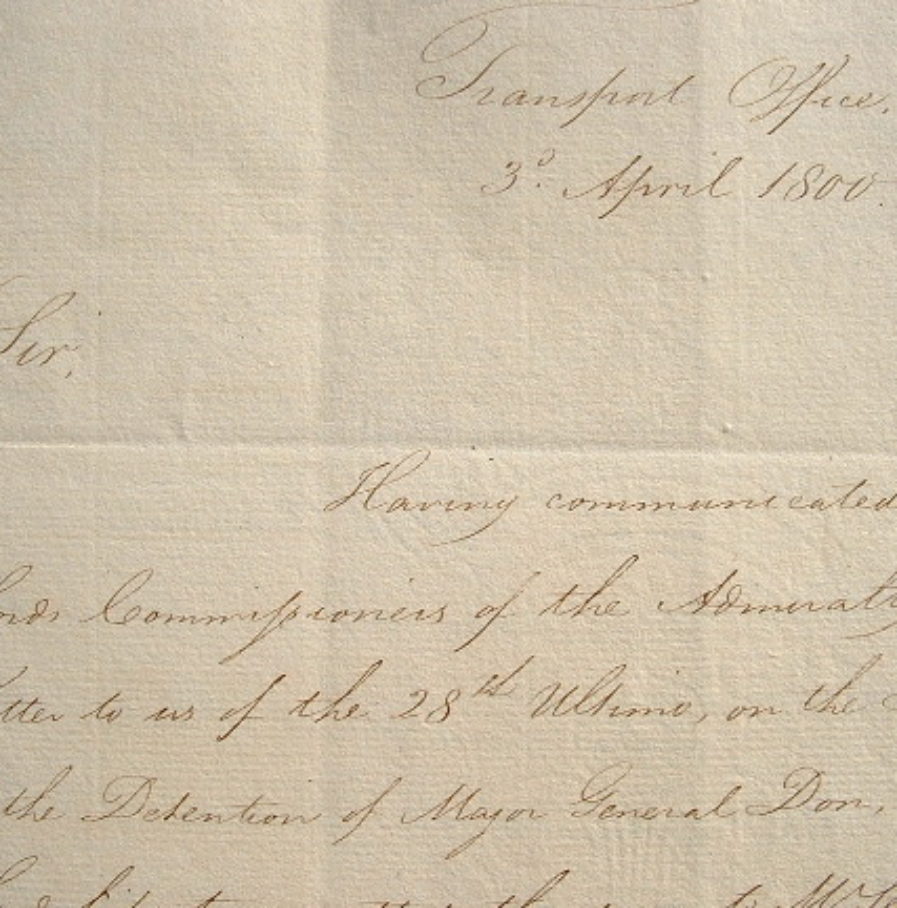 Transport Office.
3d. April 1800.
Sir,
Having communicated
Lords Commissioners of the Admiralty
letter to us of the 28th Ultimo, on the
the Detention of Major General Don,